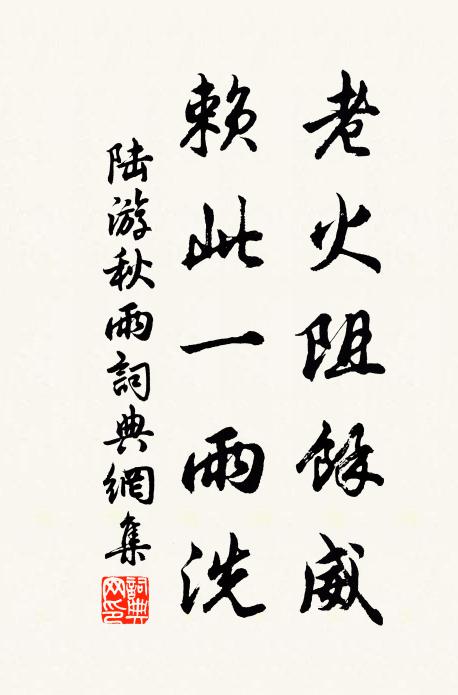 老火阻餘威
賴此一雨洗
陸游秋雨詞典網集
詞典網印